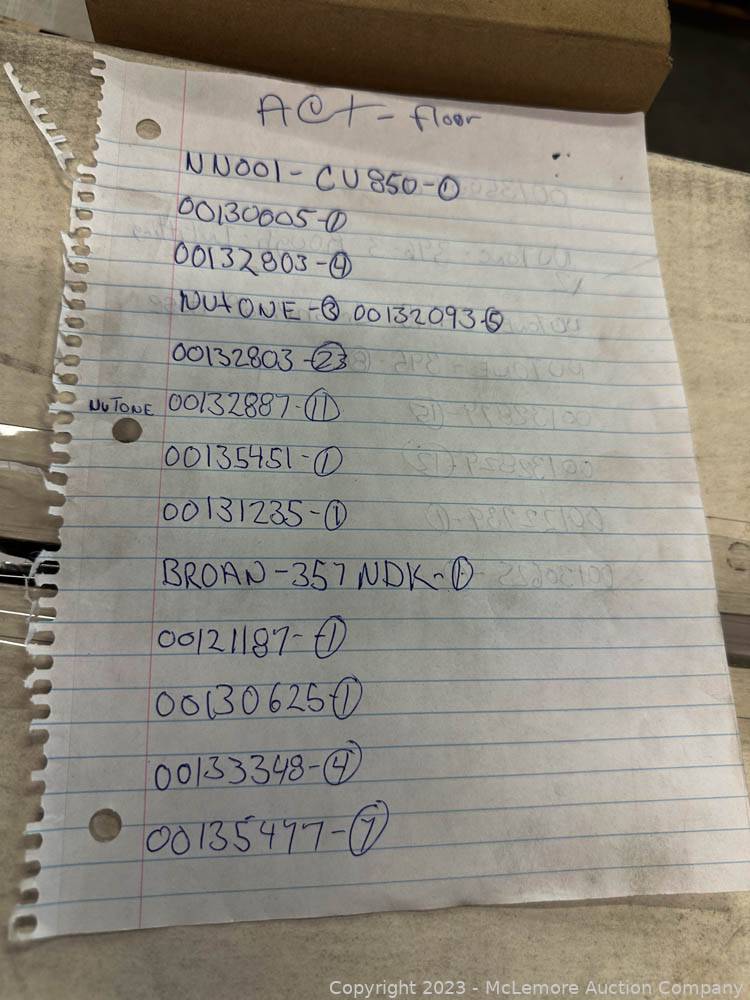 ACT - floor
NN001 - CV850 - 1
00130005 - 1
00132803 - 4
NUTONE - 3 00132093 - 5
00132803 - 23
NUTONE 00132887 - 11
00135451 - 1
00131235 - 1
BROAN - 357 NDK - 1
00121187 - 1
00130625 - 1
00133348 - 4
00135477 - 7
Copyright 2023 - McLemore Auction Company